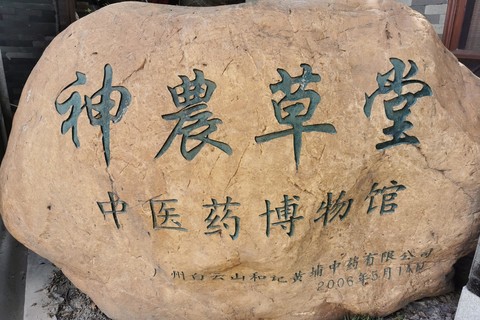 神農草堂
中医药博物馆
广州白云山和记黄埔中药有限公司
2006年